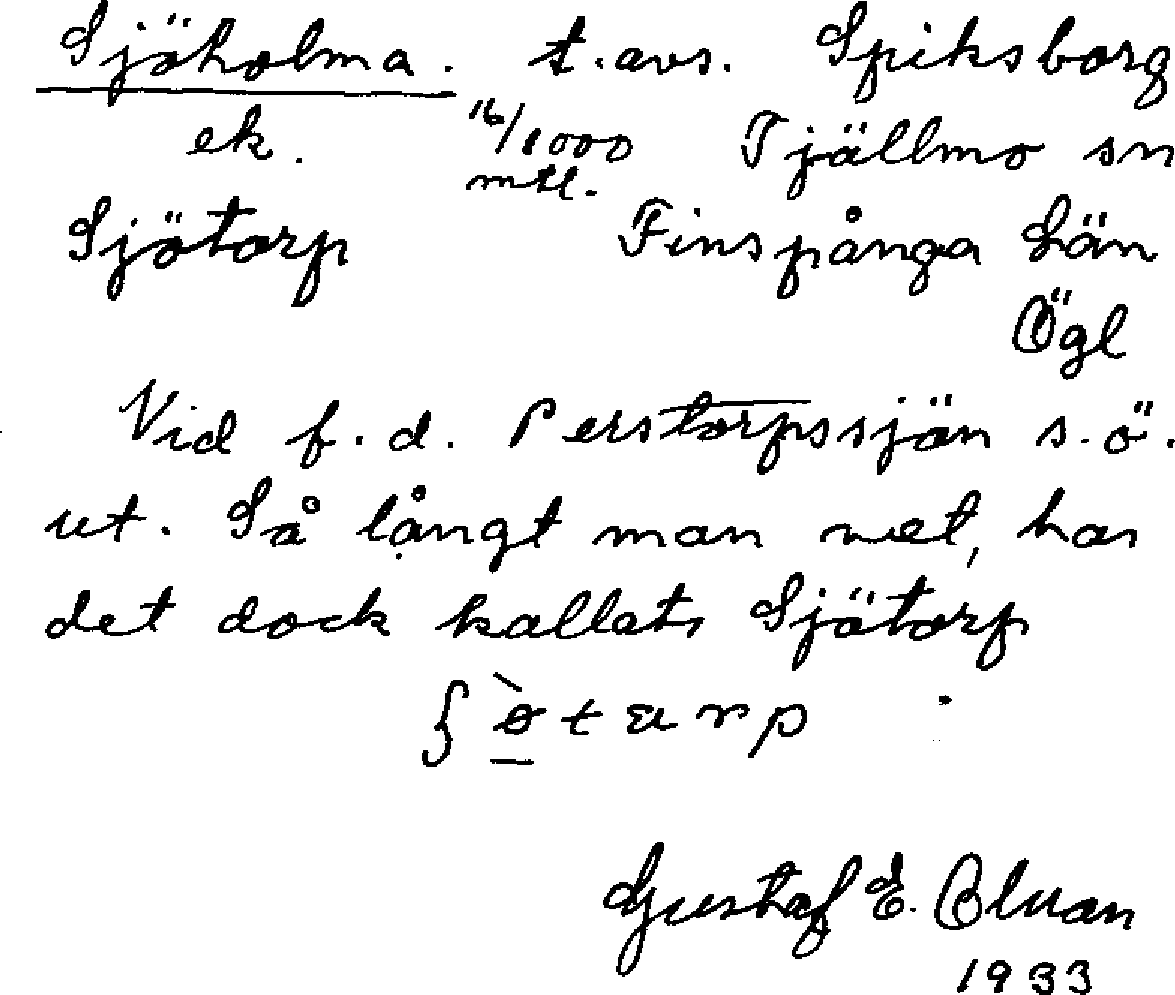 Sjöholma. t. avs. Spiksborg
ek. 16/1000 Tjällmo sn
mtl.
Sjötorp Finspånga län
Ögl
Vid f. d. Perstorpssjön s. ö.
ut. Så långt man vet, har
det dock kallats Sjötorp
Gustaf E.
1933